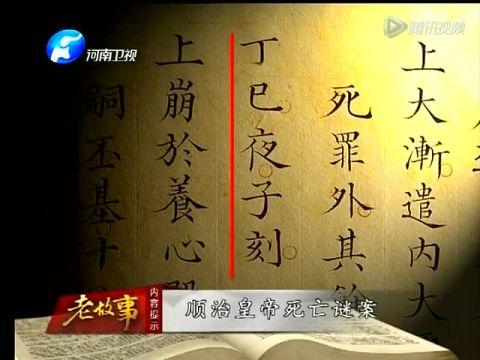 河南卫视
腾讯视频
上大漸遣内大
死罪外其餘
丁巳夜子刻
上崩於養心殿
嗣丕基十
老故事
内容提示
顺治皇帝死亡谜案